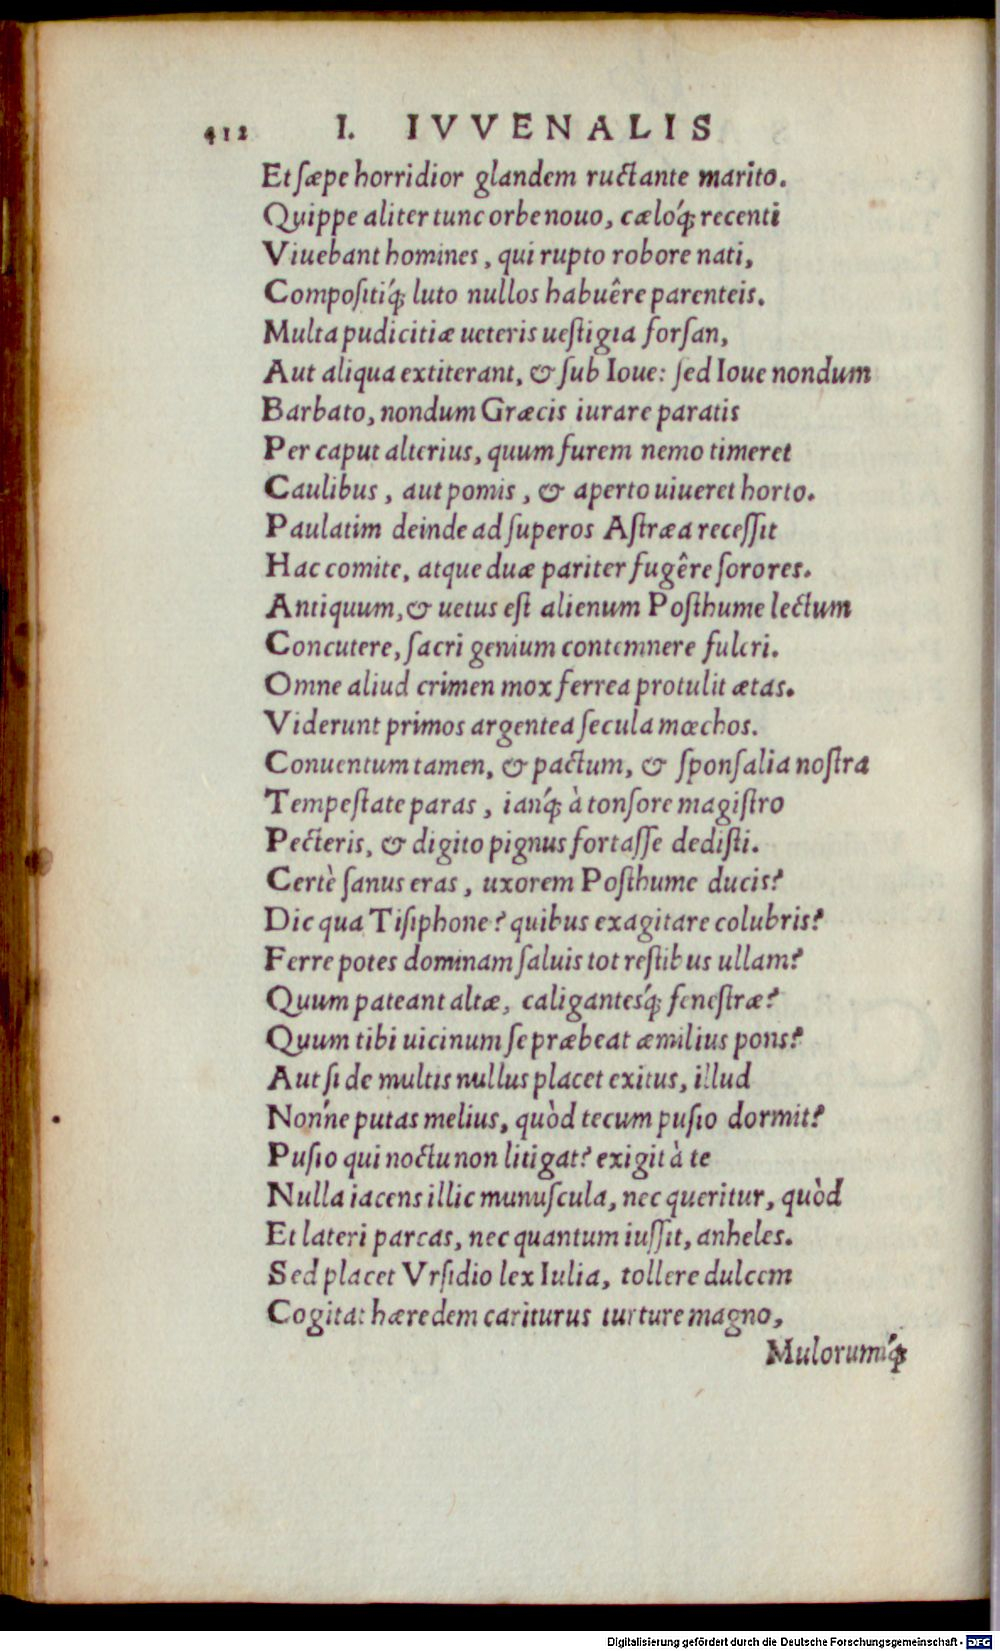 412 I. IVVENALIS
Et sæpe horridior glandem ructante marito.
Quippe aliter tunc orbe nouo, cæloq́; recenti
Viuebant homines, qui rupto robore nati,
Compositiq́; luto nullos habuêre parenteis.
Multa pudicitiæ ueteris uestigia forsan,
Aut aliqua extiterant, & sub Ioue: sed Ioue nondum
Barbato, nondum Græcis iurare paratis
Per caput alterius, quum furem nemo timeret
Caulibus, aut pomis, & aperto uiueret horto.
Paulatim deinde ad superos Astræa recessit
Hac comite, atque duæ pariter fugêre sorores.
Antiquum, & uetus est alienum Posthume lectum
Concutere, sacri genium contemnere fulcri.
Omne aliud crimen mox ferrea protulit ætas.
Viderunt primos argentea secula mœchos.
Conuentum tamen, & pactum, & sponsalia nostra
Tempestate paras, ianq́; à tonsore magistro
Pecteris, & digito pignus fortasse dedisti.
Certè sanus eras, uxorem Posthume ducis?
Dic qua Tisiphone? quibus exagitare colubris?
Ferre potes dominam saluis tot restibus ullam?
Quum pateant altæ, caligantesq́; fenestræ?
Quum tibi uicinum se præbeat æmilius pons?
Aut si de multis nullus placet exitus, illud
Nónne putas melius, quòd tecum pusio dormit?
Pusio qui noctu non litigat? exigit à te
Nulla iacens illic munuscula, nec queritur, quòd
Et lateri parcas, nec quantum iussit, anheles.
Sed placet Vrsidio lex Iulia, tollere dulcem
Cogitat hæredem cariturus turture magno,
Mulorumq́;
Digitalisierung gefördert durch die Deutsche Forschungsgemeinschaft - DFG